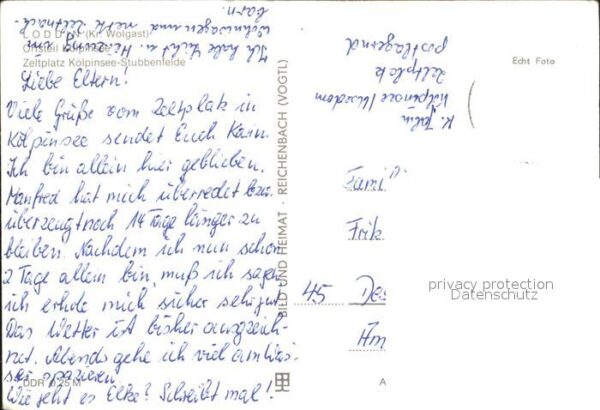 LODDIN (Kr. Wolgast)
Ortsteil Kölpinsee
Zeltplatz Kölpinsee-Stubbenfelde
Liebe Eltern!
Viele Grüße vom Zeltplatz in
Kölpinsee sendet Euch Karin.
Ich bin allein hier geblieben.
Manfred hat mich überredet bzw.
überzeugt noch 14 Tage länger zu
bleiben. Nachdem ich nun schon
2 Tage allein bin, muß ich sagen
ich erhole mich sicher sehr gut.
Das Wetter ist bisher ausgezeich-
net. Abends gehe ich viel am
spazieren.
Wie geht es Elke? Schreibt mal!
Ich habe Licht u. Heizung im
Wohnwagen und nette Zeltnach-
barn.
DDR 0,25 M
BILD UND HEIMAT · REICHENBACH (VOGTL)
A
Echt Foto
K.
Kölpinsee/Usedom
Zeltplatz
postlagernd
Fami
Frik
45 Des
Am
privacy protection
Datenschutz